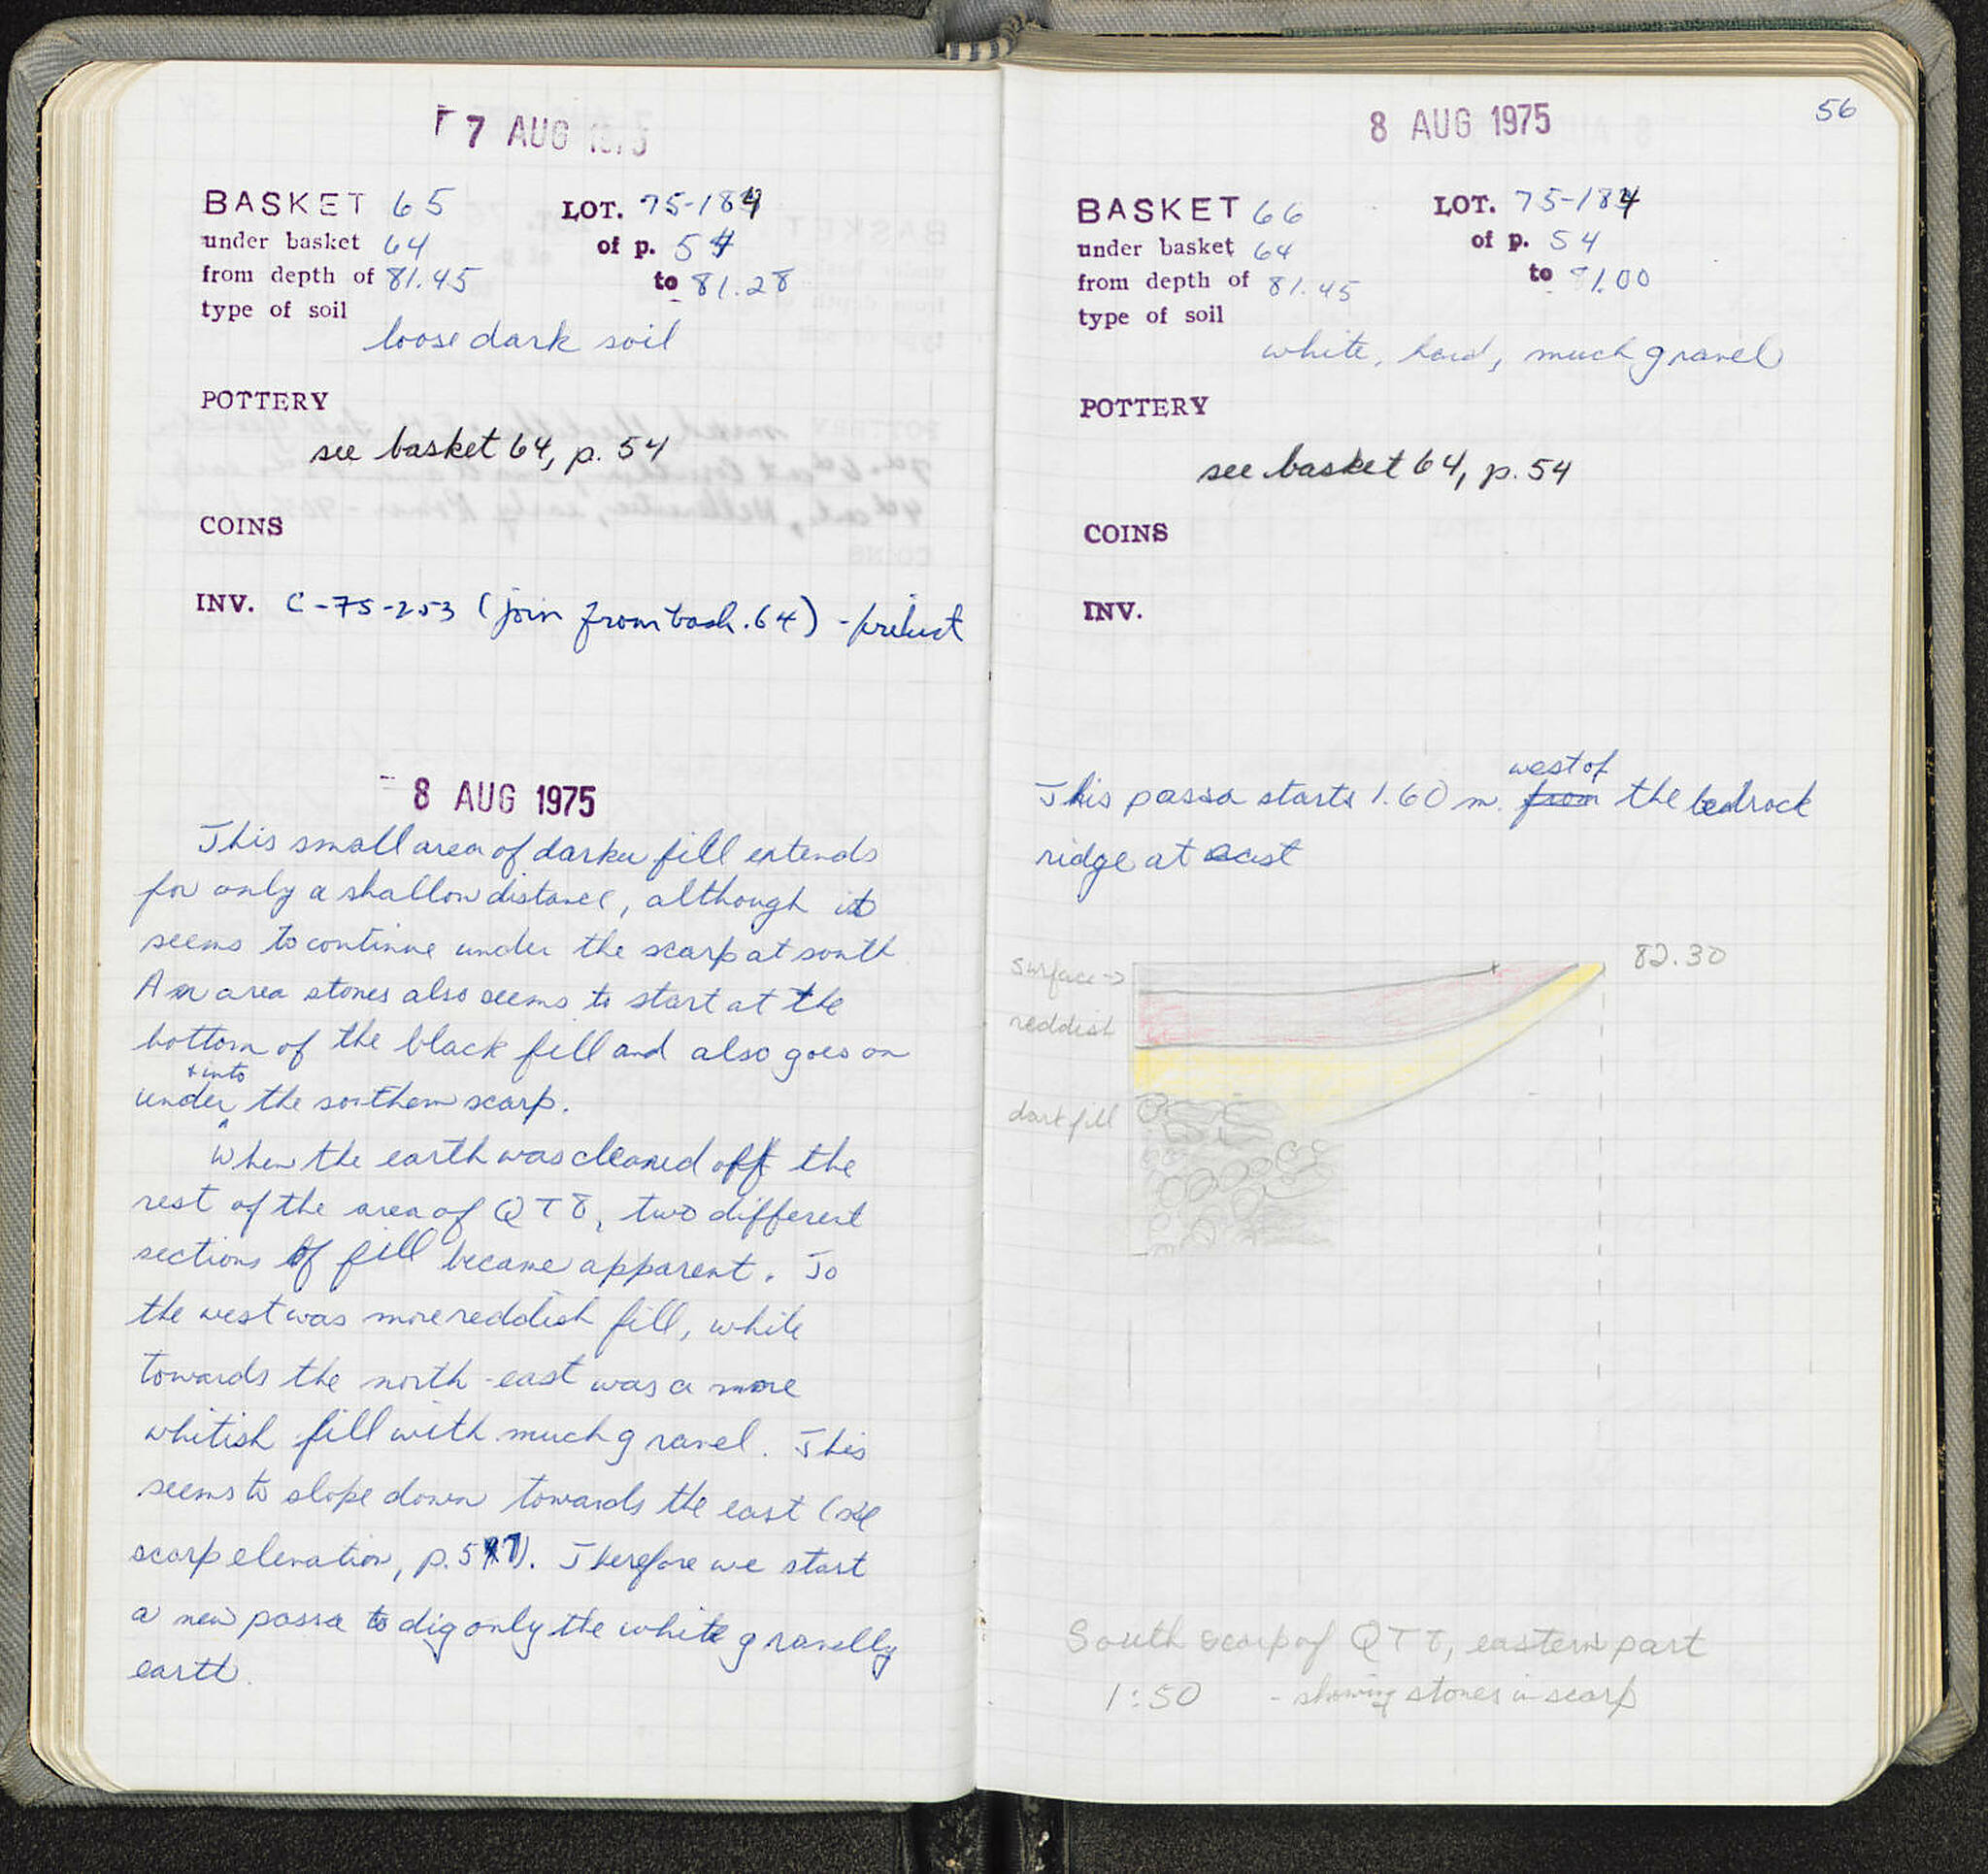 7 AUG 1975
BASKET 65 LOT. 75-184
under basket 64 of p. 54
from depth of 81.45 to 81.28
type of soil
loose dark soil
POTTERY
see basket 64, p. 54
COINS
INV. C-75-253 (join from bask. 64) -
8 AUG 1975
This small area of darker fill extends
for only a shallow distance, although it
seems to continue under the scarp at south
An area stones also seems to start at the
bottom of the black fill and also goes on
+ into
under the southern scarp.
When the earth was cleaned off the
rest of the area of QT8, two different
sections of fill became apparent. To
the west was more reddish fill, while
towards the north-east was a more
whitish fill with much gravel. This
seems to slope down towards the east (see
scarp elevation, p. 57). Therefore we start
a new passa to dig only the white gravelly
earth.
56
8 AUG 1975
BASKET 66 LOT. 75-184
under basket 64 of p. 54
from depth of 81.45 to 81.00
type of soil
white, hard, much gravel
POTTERY
see basket 64, p. 54
COINS
INV.
west of
This passa starts 1.60 m. from the bedrock
ridge at east
surface → 82.30
reddish
dark fill
South scarp of QT8, eastern part
1:50 - showing stones in scarp